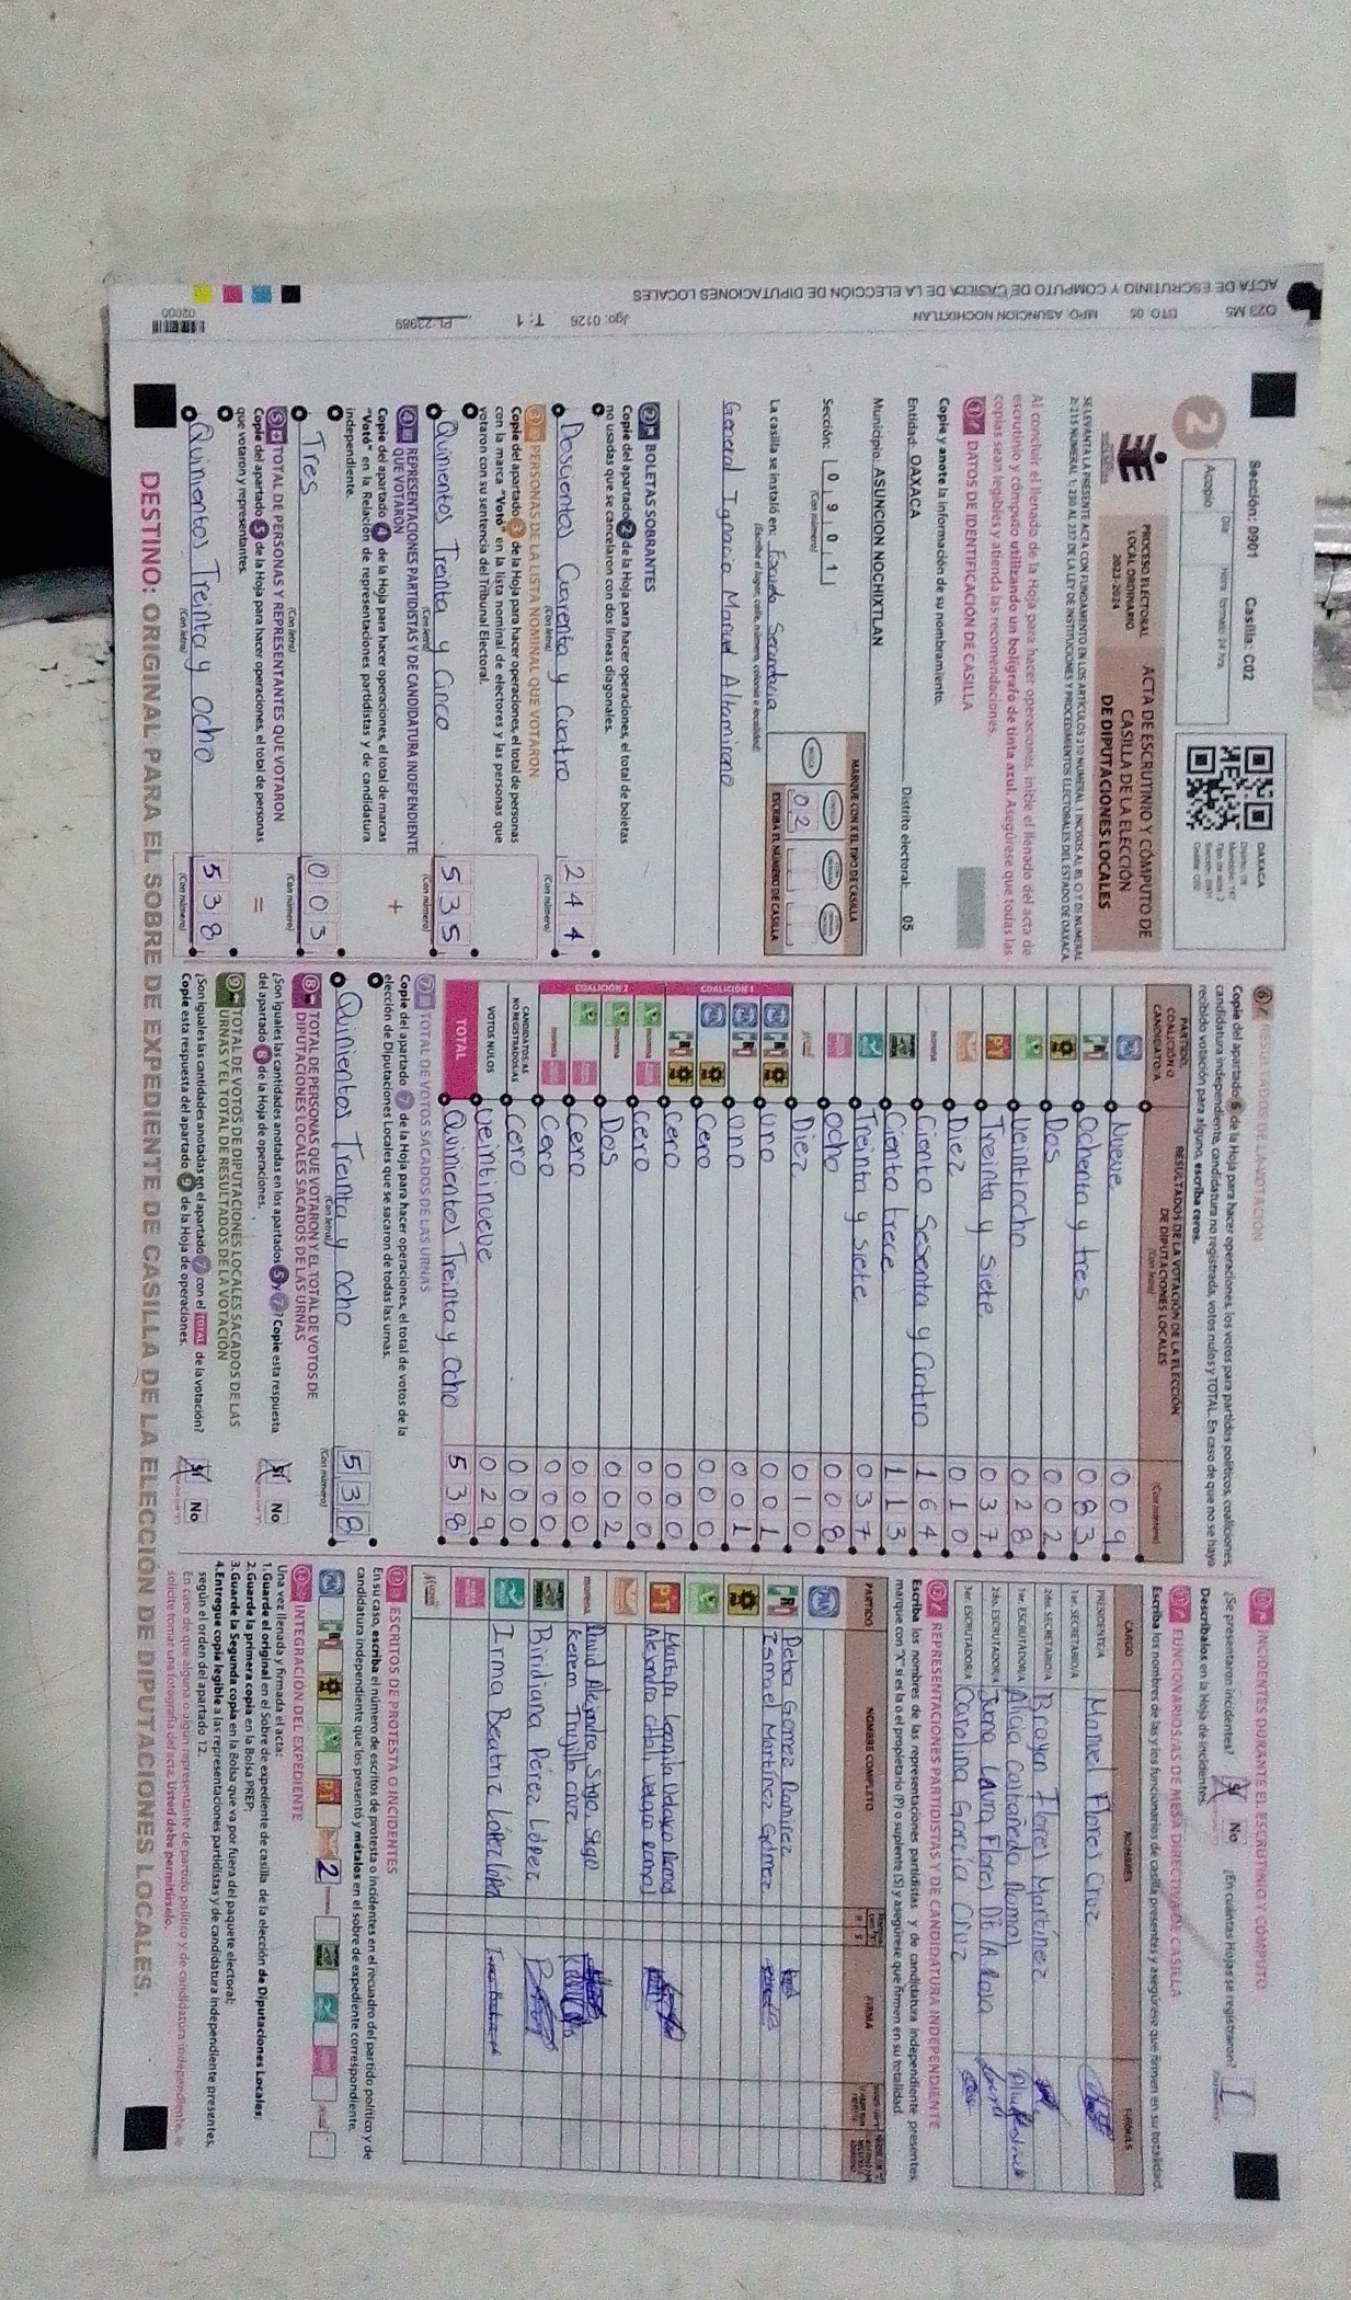 O23 M5 DTO. 05 MPO. ASUNCION NOCHIXTLAN
ACTA DE ESCRUTINIO Y COMPUTO DE CASILLA DE LA ELECCIÓN DE DIPUTACIONES LOCALES
Jgo: 0126 T: 1 PL: 23989
02000
Sección: 0901 Casilla: C02
2
Acopio
Día
Hora formato 24 hrs.
OAXACA
PROCESO ELECTORAL
LOCAL ORDINARIO
2023-2024
ACTA DE ESCRUTINIO Y CÓMPUTO DE
CASILLA DE LA ELECCIÓN
DE DIPUTACIONES LOCALES
SE LEVANTA LA PRESENTE ACTA CON FUNDAMENTO EN LOS ARTÍCULOS 210 NUMERAL 1 INCISOS A), B), C) Y D) NUMERAL
2; 215 NUMERAL 1; 230 AL 237 DE LA LEY DE INSTITUCIONES Y PROCEDIMIENTOS ELECTORALES DEL ESTADO DE OAXACA.
Al concluir el llenado de la Hoja para hacer operaciones, inicie el llenado del acta de
escrutinio y cómputo utilizando un bolígrafo de tinta azul. Asegúrese que todas las
copias sean legibles y atienda las recomendaciones.
1 DATOS DE IDENTIFICACIÓN DE CASILLA
Copie y anote la información de su nombramiento.
Entidad: OAXACA Distrito electoral: 05
Municipio: ASUNCION NOCHIXTLAN
Sección: 0 9 0 1
(Con número)
MARQUE CON X EL TIPO DE CASILLA
0 2
ESCRIBA EL NÚMERO DE CASILLA
La casilla se instaló en: Escuela Secundaria
(Escriba el lugar, calle, número, colonia o localidad)
General Ignacio Manuel Altamirano
2 BOLETAS SOBRANTES
Copie del apartado 2 de la Hoja para hacer operaciones, el total de boletas
no usadas que se cancelaron con dos líneas diagonales.
Doscientos Cuarenta y Cuatro 2 4 4
(Con letra) (Con número)
3 PERSONAS DE LA LISTA NOMINAL QUE VOTARON
Copie del apartado 3 de la Hoja para hacer operaciones, el total de personas
con la marca "Votó" en la lista nominal de electores y las personas que
votaron con su sentencia del Tribunal Electoral.
Quinientos Treinta y Cinco 5 3 5
(Con letra) (Con número)
4 REPRESENTACIONES PARTIDISTAS Y DE CANDIDATURA INDEPENDIENTE
QUE VOTARON
+
Copie del apartado 4 de la Hoja para hacer operaciones, el total de marcas
"Votó" en la Relación de representaciones partidistas y de candidatura
independiente.
Tres 0 0 3
(Con letra) (Con número)
5 TOTAL DE PERSONAS Y REPRESENTANTES QUE VOTARON
=
Copie del apartado 5 de la Hoja para hacer operaciones, el total de personas
que votaron y representantes.
Quinientos Treinta y ocho 5 3 8
(Con letra) (Con número)
6 RESULTADOS DE LA VOTACIÓN
Copie del apartado 6 de la Hoja para hacer operaciones, los votos para partidos políticos, coaliciones,
candidatura independiente, candidatura no registrada, votos nulos y TOTAL. En caso de que no se haya
recibido votación para alguno, escriba ceros.
PARTIDO,
COALICIÓN O
CANDIDATO/A
RESULTADOS DE LA VOTACIÓN DE LA ELECCIÓN
DE DIPUTACIONES LOCALES
(Con letra) (Con número)
PAN Nueve 0 0 9
PRI Ochenta y tres 0 8 3
Dos 0 0 2
Veintiocho 0 2 8
PT Treinta y Siete 0 3 7
Diez 0 1 0
morena Ciento Sesenta y Cuatro 1 6 4
Ciento trece 1 1 3
Treinta y siete 0 3 7
Ocho 0 0 8
Diez 0 1 0
COALICIÓN 1
Uno 0 0 1
uno 0 0 1
Cero 0 0 0
Cero 0 0 0
COALICIÓN 2
Cero 0 0 0
Dos 0 0 2
Cero 0 0 0
Cero 0 0 0
CANDIDATOS/AS
NO REGISTRADOS/AS
Cero 0 0 0
VOTOS NULOS Veintinueve 0 2 9
TOTAL Quinientos Treinta y Ocho 5 3 8
7 TOTAL DE VOTOS SACADOS DE LAS URNAS
Copie del apartado 7 de la Hoja para hacer operaciones, el total de votos de la
elección de Diputaciones Locales que se sacaron de todas las urnas.
Quinientos Treinta y ocho 5 3 8
(Con letra) (Con número)
8 TOTAL DE PERSONAS QUE VOTARON Y EL TOTAL DE VOTOS DE
DIPUTACIONES LOCALES SACADOS DE LAS URNAS
¿Son iguales las cantidades anotadas en los apartados 5 y 7? Copie esta respuesta
del apartado 8 de la Hoja de operaciones.
Sí No
9 TOTAL DE VOTOS DE DIPUTACIONES LOCALES SACADOS DE LAS
URNAS Y EL TOTAL DE RESULTADOS DE LA VOTACIÓN
¿Son iguales las cantidades anotadas en el apartado 7 con el TOTAL de la votación?
Copie esta respuesta del apartado 9 de la Hoja de operaciones.
Sí No
10 INCIDENTES DURANTE EL ESCRUTINIO Y CÓMPUTO
¿Se presentaron incidentes? Sí No ¿En cuántas Hojas se registraron? 1
Descríbalos en la Hoja de incidentes.
11 FUNCIONARIOS/AS DE MESA DIRECTIVA DE CASILLA
Escriba los nombres de las y los funcionarios de casilla presentes y asegúrese que firmen en su totalidad.
CARGO NOMBRES FIRMAS
PRESIDENTE/A Manuel Flores Cruz
1er. SECRETARIO/A
2do. SECRETARIO/A Brayan Flores Martínez
1er. ESCRUTADOR/A Alicia Castañeda Roma
2do. ESCRUTADOR/A Juana Laura Flores De la Rosa
3er. ESCRUTADOR/A Carolina García Cruz
12 REPRESENTACIONES PARTIDISTAS Y DE CANDIDATURA INDEPENDIENTE
Escriba los nombres de las representaciones partidistas y de candidatura independiente presentes,
marque con "X" si es la o el propietario (P) o suplente (S) y asegúrese que firmen en su totalidad.
PARTIDO NOMBRE COMPLETO FIRMA
PAN
PRI Delia Gomez Ramirez
Ismael Martínez Gómez
PT
Alejandra
morena David Alejandro Stgo. Stgo
Kerem Trujillo Cruz
Biridiana Pérez López
Irma Beatriz López López
13 ESCRITOS DE PROTESTA O INCIDENTES
En su caso, escriba el número de escritos de protesta o incidentes en el recuadro del partido político y de
candidatura independiente que los presentó y métalos en el sobre de expediente correspondiente.
2
14 INTEGRACIÓN DEL EXPEDIENTE
Una vez llenada y firmada el acta:
1. Guarde el original en el Sobre de expediente de casilla de la elección de Diputaciones Locales;
2. Guarde la primera copia en la Bolsa PREP;
3. Guarde la Segunda copia en la Bolsa que va por fuera del paquete electoral;
4. Entregue copia legible a las representaciones partidistas y de candidatura independiente presentes,
según el orden del apartado 12.
En caso de que alguna o algún representante de partido político y de candidatura independiente, le
solicite tomar una fotografía del acta, Usted debe permitírselo.
DESTINO: ORIGINAL PARA EL SOBRE DE EXPEDIENTE DE CASILLA DE LA ELECCIÓN DE DIPUTACIONES LOCALES.